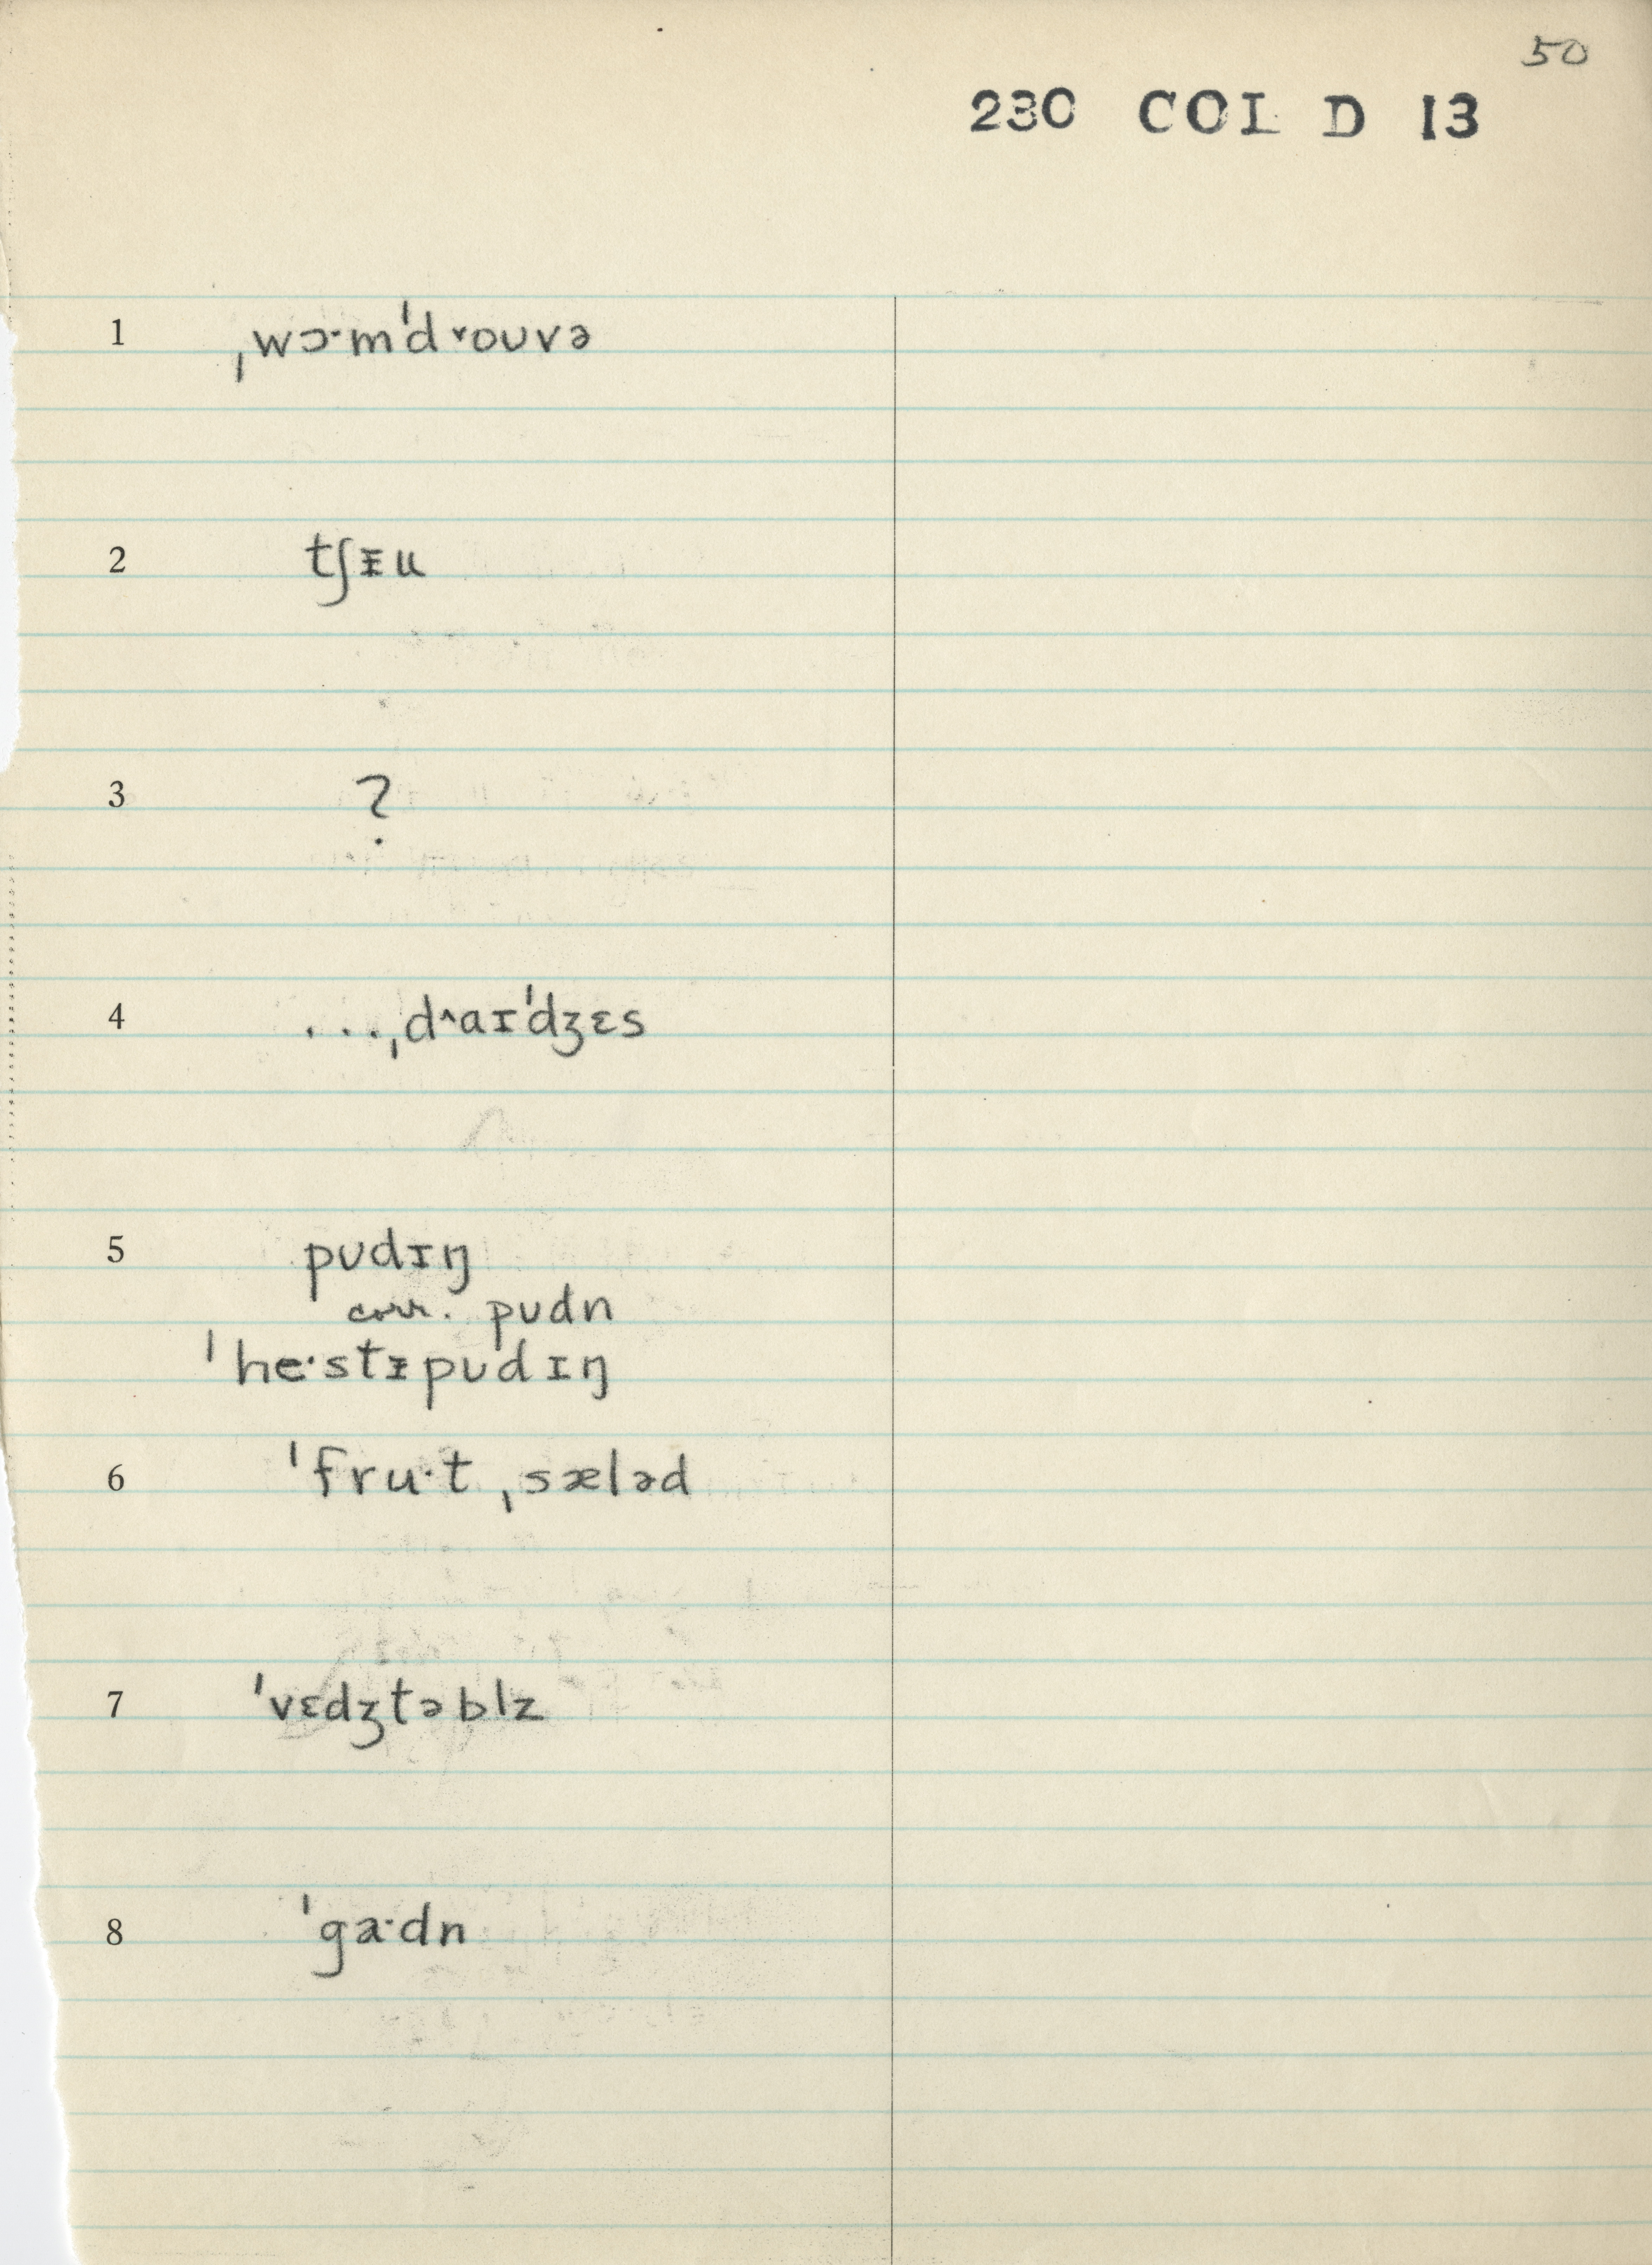 50
230 COL D 13
1 ˌwɔ·mˈd˅oʊvə
2 tʃᵻu
3 ?
4 ...ˌd^aɪˈdʒɛs
5 pʊdɪŋ
corr. pʊdn
ˈhe·stᵻpʊdɪŋ
6 ˈfru·t ˌsæləd
7 ˈvɛdʒtəblz
8 ˈga·dn